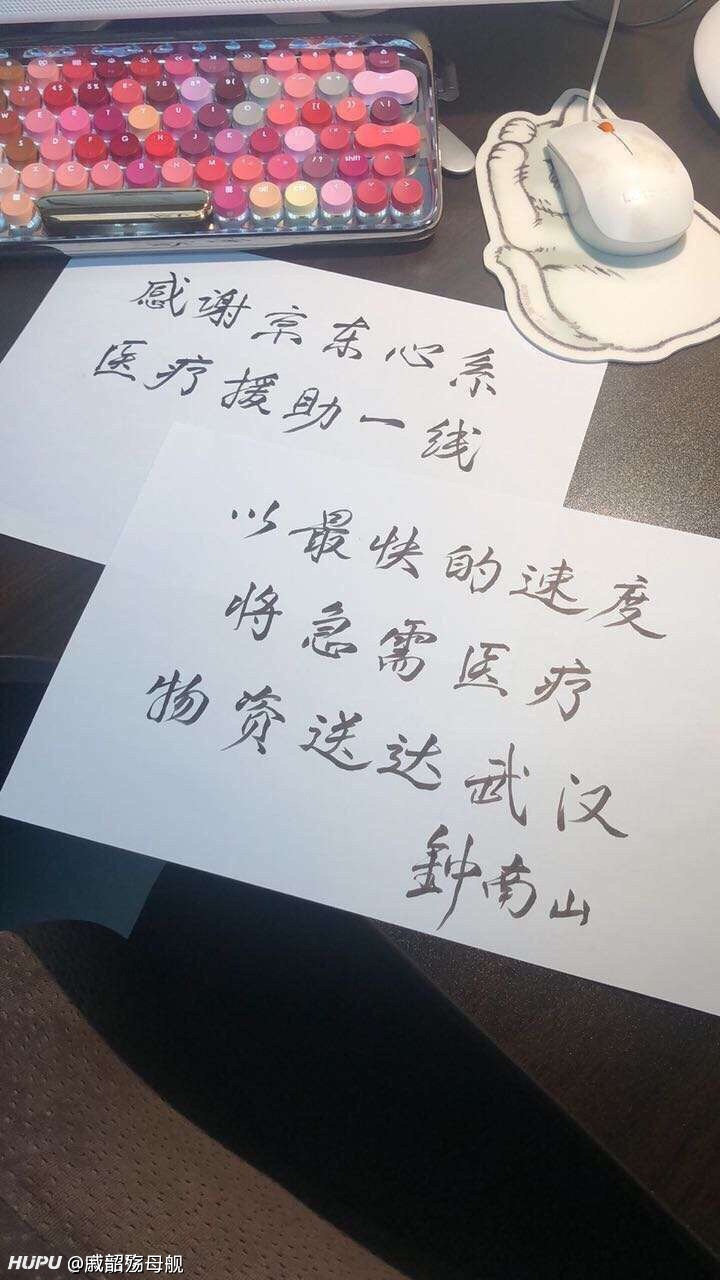 感谢京东心系
医疗援助一线
以最快的速度
将急需医疗
物资送达武汉
鈡南山
HUPU @戚韶殇母舰